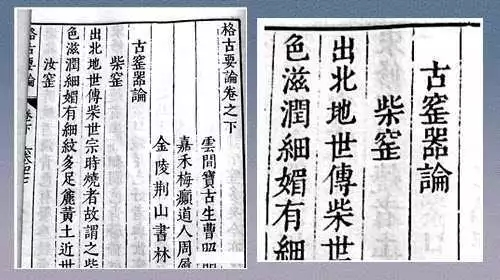 格古要論卷之下
雲間寶古生曹昭
嘉禾梅癲道人周履
金陵荊山書林
古窰器論
柴窰
出北地世傳柴世宗時燒者故謂之柴
色滋潤細媚有細紋多足麄黃土近世
汝窰
格古要論
卷下
古窰器論
柴窰
出北地世傳柴世
色滋潤細媚有細